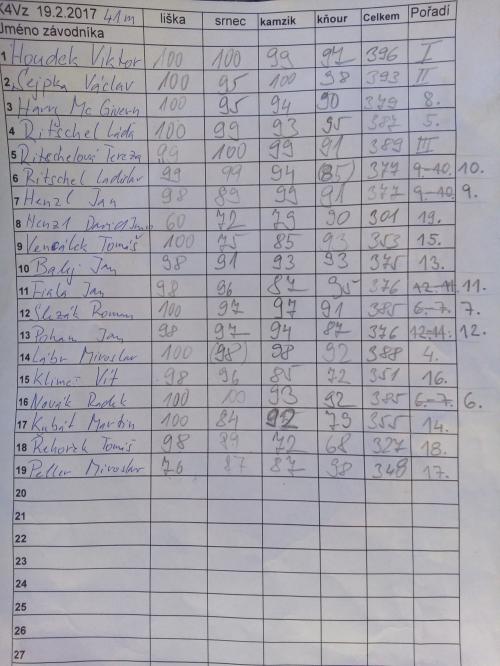 K4Vz 19.2.2017 41m liška srnec kamzik kňour Celkem Pořadí
Jméno závodníka
1 Houdek Viktor 100 100 99 97 396 I
2 Sejpka Václav 100 95 100 98 393 II
3 Harry Mc Givern 100 95 94 90 379 8.
4 Ritschel Láďa 100 99 93 95 387 5.
5 Ritschelová Tereza 99 100 99 91 389 III
6 Ritschel Ladislav 99 99 94 (85) 377 9.-10. 10.
7 Henzl Jan 98 89 99 91 377 9.-10. 9.
8 Henzl David 60 72 79 90 301 19.
9 Tomáš 100 75 85 93 353 15.
10 Balej Jan 98 91 93 93 375 13.
11 Fiala Jan 98 96 87 95 376 12.-11. 11.
12 Slezák Roman 100 97 97 91 385 6.-7. 7.
13 Pohan Jan 98 97 94 87 376 12.-11. 12.
14 Miroslav 100 (98) 98 92 388 4.
15 Klimeš Vít 98 96 85 72 351 16.
16 Novák Radek 100 100 93 92 385 6.-7. 6.
17 Kubát Martin 100 84 92 79 355 14.
18 Řehořek Tomáš 98 89 72 68 327 18.
19 Peller Miroslav 76 87 87 98 348 17.
20
21
22
23
24
25
26
27